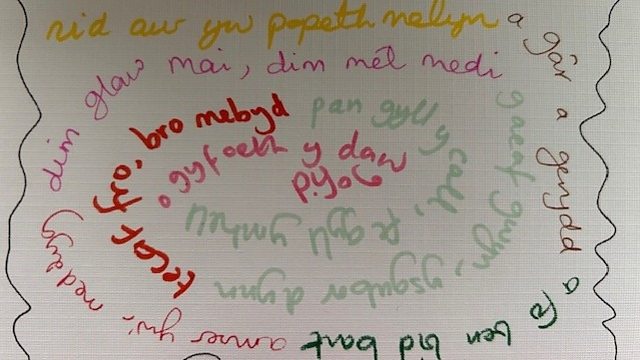 nid aur yw popeth melyn
a gâr a gerydd
dim glaw mai, dim mêl medi
tecaf fro, bro mebyd
pan gyll y call, fe gyll ymhell
gaeaf gwyn, ysgubor dynn
o gyfoeth y daw gofid
a fo ben bid bont
amser yw'r meddyg